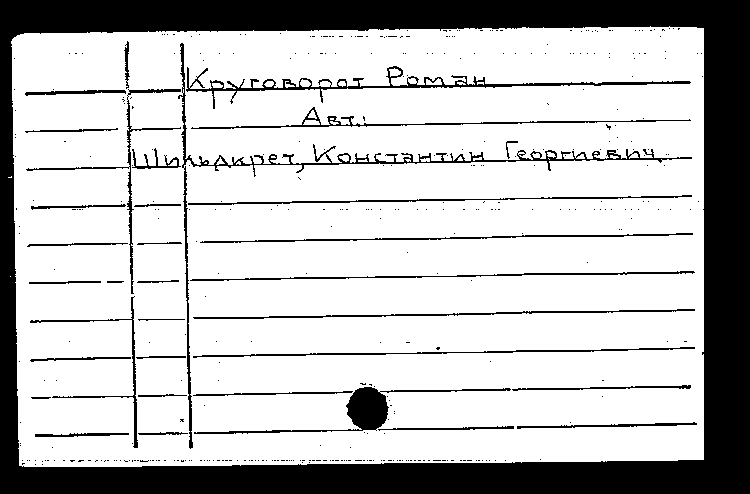 Круговорот Роман
Авт.:
Шильдкрет, Константин Георгиевич.